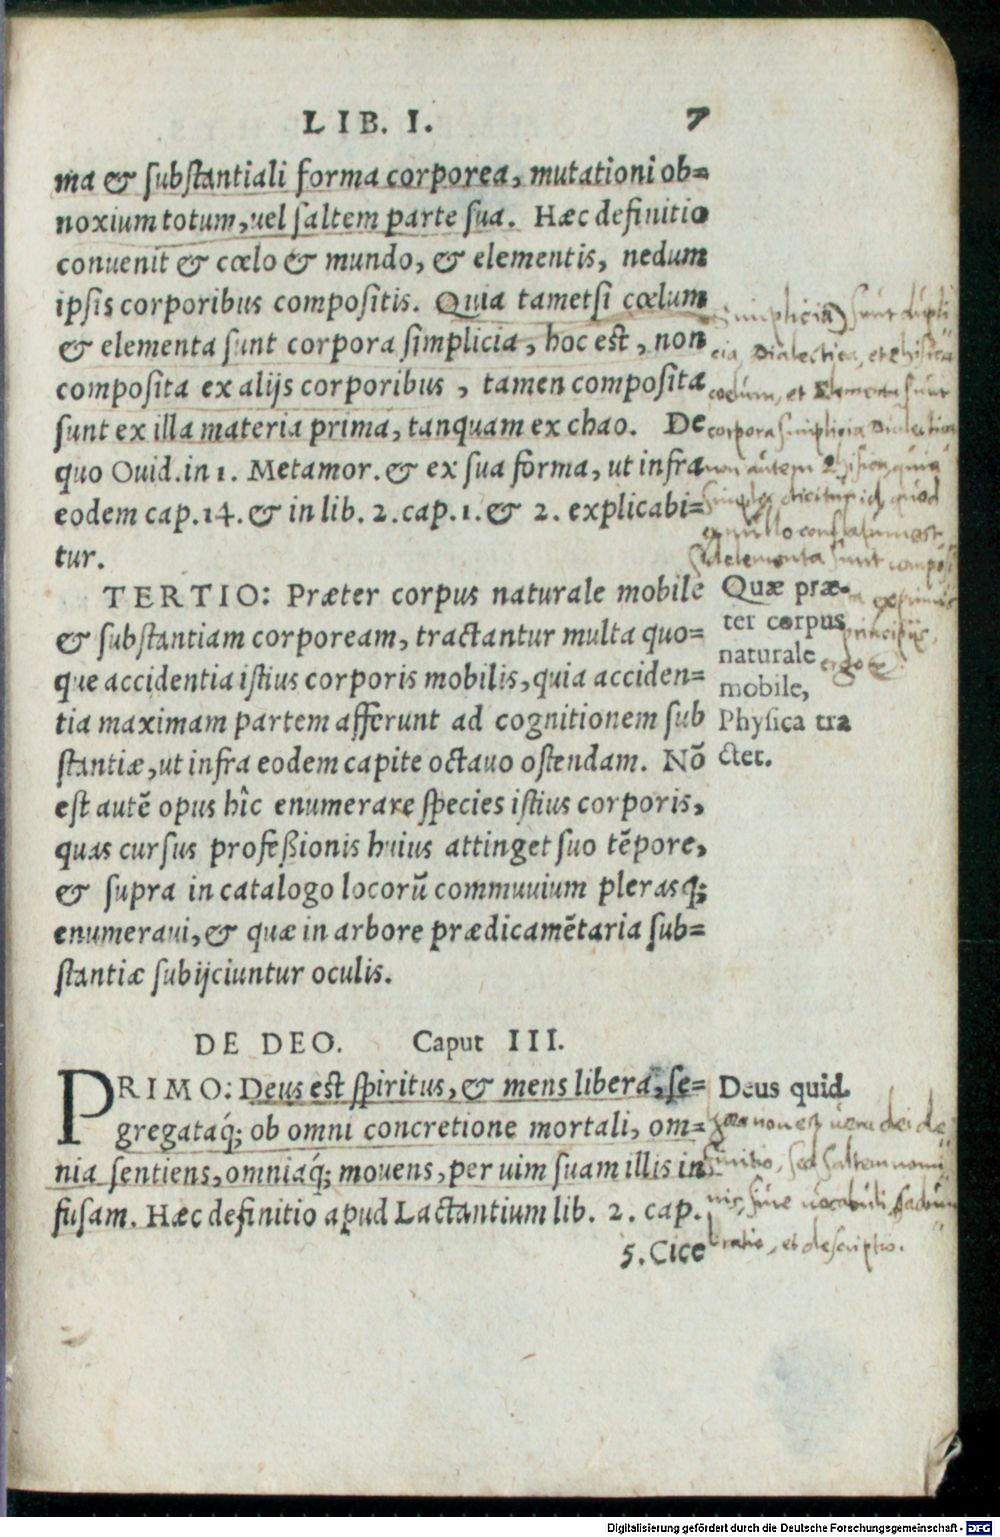 LIB. I. 7
ma & substantiali forma corporea, mutationi ob=
noxium totum, uel saltem parte sua. Hæc definitio
conuenit & cœlo & mundo, & elementis, nedum
ipsis corporibus compositis. Quia tametsi cœlum
& elementa sunt corpora simplicia, hoc est, non
composita ex alijs corporibus, tamen composita
sunt ex illa materia prima, tanquam ex chao. De
quo Ouid. in 1. Metamor. & ex sua forma, ut infra
eodem cap. 14. & in lib. 2. cap. 1. & 2. explicabi=
tur.
Simplicia) sunt dupli
cia, Dialectica, et Phisica
cœlum, et Elementa sunt
corpora simplicia Dialectica
non autem Phisica, quia
simplex dicitur id, quod
ex nullo conflatum est
sunt
ex primis
principijs,
ergo
TERTIO: Præter corpus naturale mobile
& substantiam corpoream, tractantur multa quo=
que accidentia istius corporis mobilis, quia acciden=
tia maximam partem afferunt ad cognitionem sub
stantiæ, ut infra eodem capite octauo ostendam. Nõ
est autẽ opus hîc enumerare species istius corporis,
quas cursus profeßionis huius attinget suo tẽpore,
& supra in catalogo locorũ commuuium plerasq;
enumeraui, & quæ in arbore prædicamẽtaria sub=
stantiæ subijciuntur oculis.
Quæ præ-
ter corpus
naturale
mobile,
Physica tra
ctet.
DE DEO. Caput III.
PRIMO: Deus est spiritus, & mens libera, se=
gregataq́; ob omni concretione mortali, om=
nia sentiens, omniaq́; mouens, per uim suam illis in
fusam. Hæc definitio apud Lactantium lib. 2. cap.
5. Cice
Deus quid.
non est uera dei de
finitio, sed saltem nomi
nis, siue uocabuli,
et descriptio.